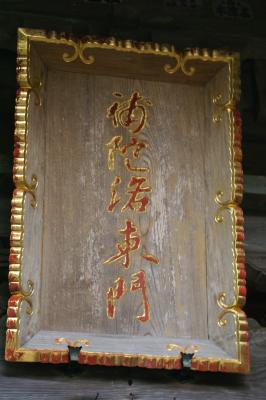 補陀洛東門